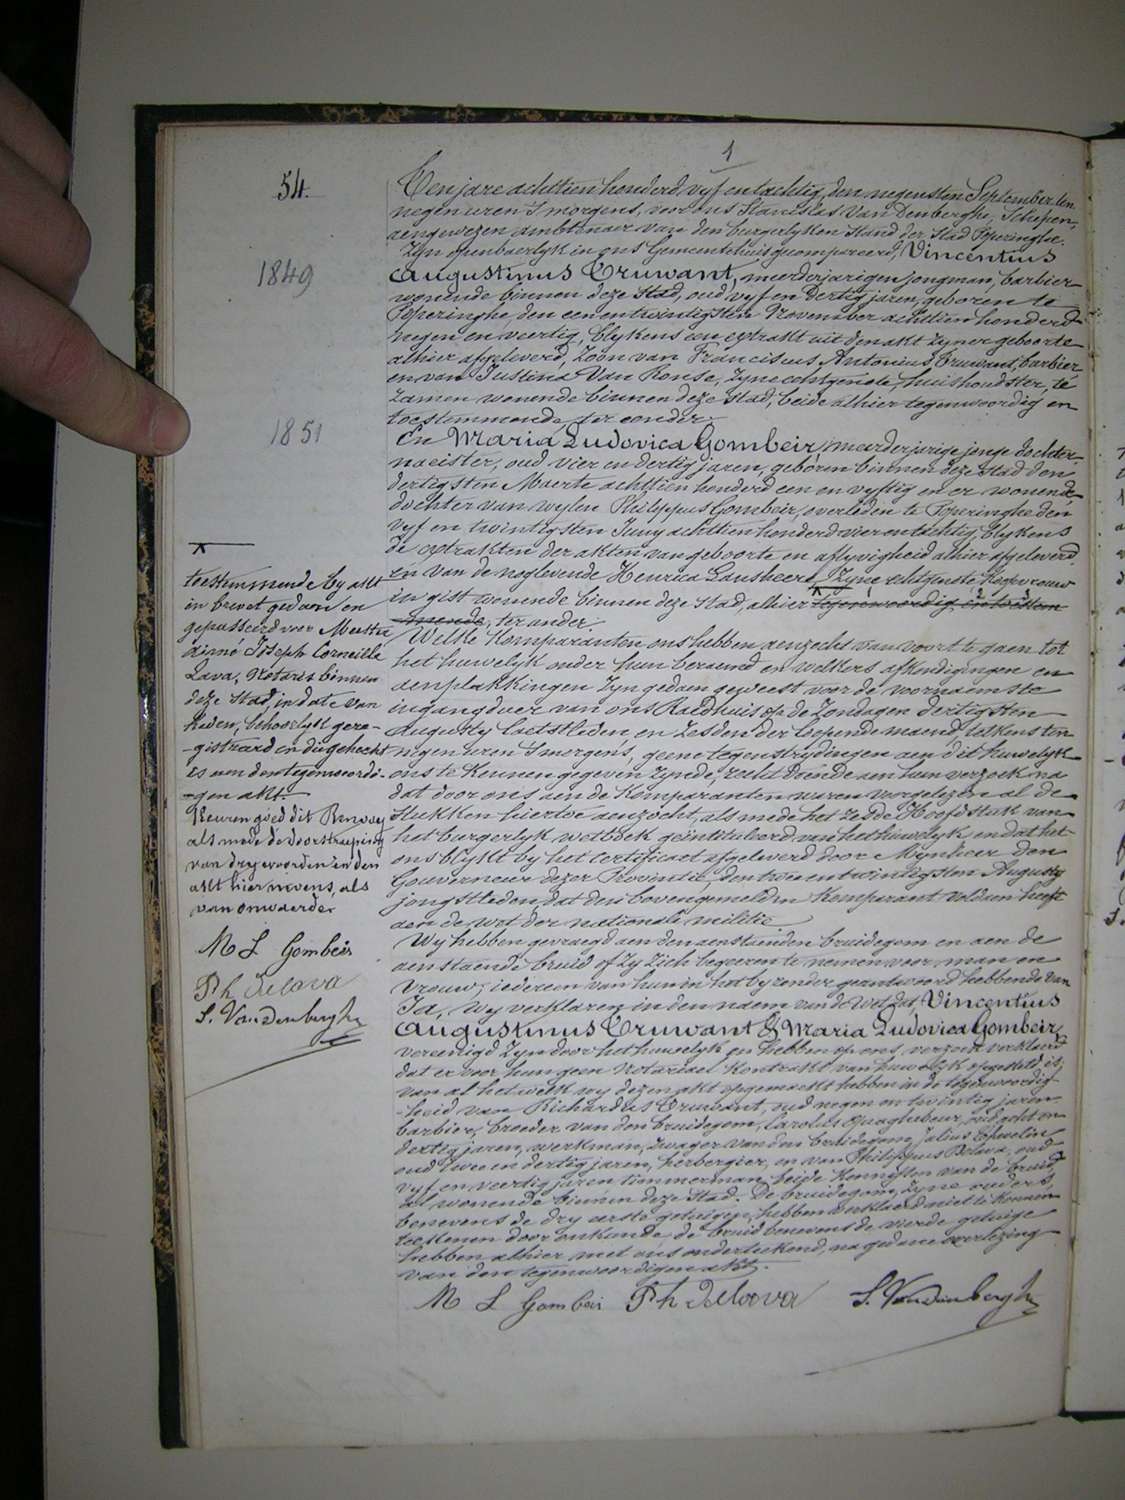 1
54.
Ten jare achttien honderd vyf en tachtig, den negensten September ten
negen uren s'morgens, voor ons Stanislas Van Denberghe, Schepen,
aengewezen ambtenaer van den burgerlyken Stand der Stad Poperinghe.
Zyn openbaerlyk in ons Gemeentehuis gecompareerd, Vincentius
1849
Augustinus Truwant, meerderjarigen jongman, barbier
wonende binnen deze Stad, oud vyf en dertig jaren, geboren te
Poperinghe, den een en twintigsten November achttien honderd
negen en veertig, blykens een extrakt uit den akt zyner geboorte
alhier afgeleverd, Zoon van Franciscus Antonius Truwant, barbier
en van Justina Van Ronse, zyne echtgenote, huishoudster, te
zamen wonende binnen deze Stad, beide alhier tegenwoordig en
toestemmende, ter eender.
1851
En Maria Ludovica Gombeir, meerderjarige jonge dochter,
naeister, oud vier en dertig jaren, geboren binnen deze Stad den
dertigsten Maerte achttien honderd een en vyftig en er wonende
dochter van wylen Philippus Gombeir, overleden te Poperinghe den
vyf en twintigsten Juny achttien honderd vier en tachtig, blykens
de extrakten der akten van geboorte en aflyvigheid alhier afgeleverd
en van de noglevende Henrica Lansheere, Zyne echtgenote
in gist wonende binnen deze Stad, alhier tegenwoordig en toestem
mende, ter ander.
Welke Komparanten ons hebben aenzocht van voort te gaen tot
het huwelyk onder hun beraemd en welkers afkondigingen en
aenplakkingen zyn gedaen geweest voor de voornaemste
ingangdeur van ons Raedhuis op de Zondagen dertigsten
Augusty laetstleden en zesden der loopende maend, telkens ten
negen uren s'morgens, geene tegenstrydingen aen dit huwelyk
ons te kennen gegeven zynde, recht doende aen hun verzoek na
dat door ons aen de Komparanten waren voorgelezen al de
Stukken hiertoe aenzocht, als mede het zesde Hoofdstuk van
het burgerlyk wetboek geïntituleerd van het huwelyk en dat het
ons blykt by het certificaet afgeleverd door Mynheer den
Gouverneur dezer Provintie, den twee en twintigsten Augusty
jongstleden, dat den bovengemelden Komparant voldaen heeft
aen de wet der nationale militie.
Wy hebben gevraegd aen den aenstaenden bruidegom en aen de
aenstaende bruid of zy zich begeeren te nemen voor man en
vrouw; iedereen van hun in het byzonder geantwoord hebbende van
Ja, wy verklaren in den naem van de Wet dat Vincentius
Augustinus Truwant & Maria Ludovica Gombeir,
vereenigd zyn door het huwelyk en hebben op ons verzoek verklaerd
dat er voor hun geen notariael Kontrakt van huwelyk opgesteld is,
van al hetwelk wy dezen akt opgemaekt hebben in de tegenwoordig
-heid van Richardus Truwant, oud negen en twintig jaren
barbier, broeder van den bruidegom, Carolus Quaghebeur, oud acht en
dertig jaren, werkman, zwager van den bruidegom, Julius
oud twee en dertig jaren, herbergier, en van Philippus Delava, oud
vyf en veertig jaren timmerman, beide Kennissen van de bruid
al wonende binnen deze Stad. De bruidegom, zyne ouders,
benevens de dry eerste getuigen, hebben verklaerd niet te kunnen
teekenen door onkunde, de bruid benevens de vierde getuige
hebben alhier met ons onderteekend, na gedane voorlezing
van den tegenwoordigen akt.
M L Gombeir Ph Delava S. Vandenberghe
toestemmende by akt
in brevet gedaen en
gepasseerd voor Meester
Aimé Joseph Corneille
Lava, Notaris binnen
deze Stad, in date van
heden, behoorlyk gere-
-gistreerd en die gehecht
is aen den tegenwoordi-
-gen akt.
Keuren goed dit Renvooy
als mede de doorstreeping
van dry woorden in den
akt hiernevens, als
van onwaerde.
M L Gombeir
Ph Delava
S. Vandenberghe